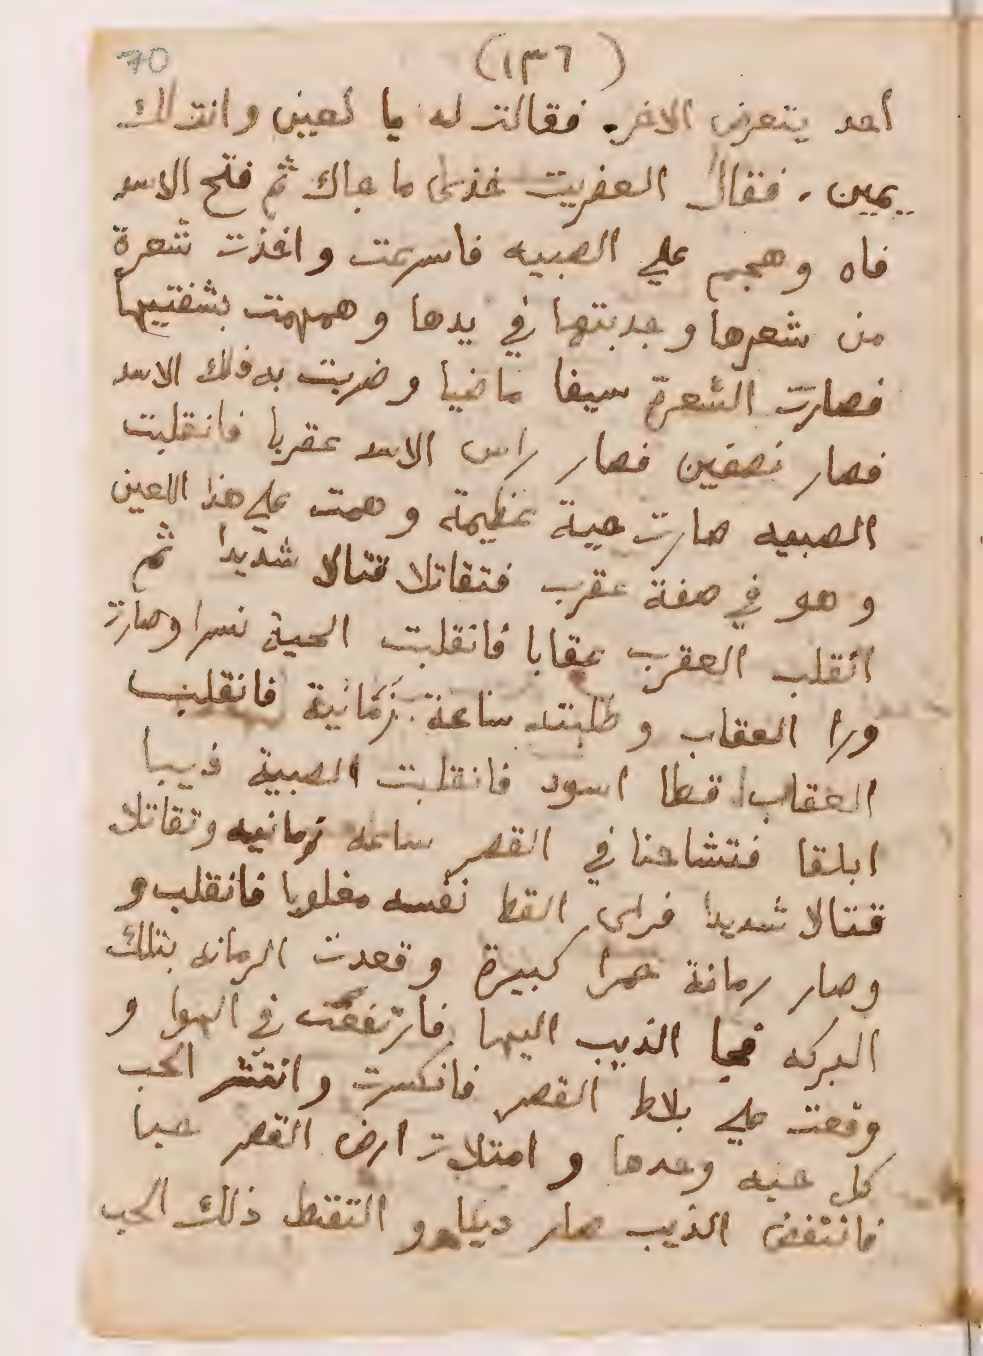 70 (١٣٦)
احد يتعرض الاخر. فقالت له يا لعين وانت لك
يمين. فقال العفريت خذي ما جاك ثم فتح الاسد
فاه وهجم علي الصبيه فاسرعت واخذت شعرة
من شعرها وجدبتها في يدها وهمهمت بشفتيها
فصارت الشعرة سيفا ماضيا وضربت به ذلك الاسد
فصار نصفين فصار راس الاسد عقربا فانقلبت
الصبيه صارت حية عظيمة وهمت علي هذا اللعين
وهو في صفة عقرب فتقاتلا قتالا شديدا ثم
انقلب العقرب عقابا فانقلبت الحية نسرا وصارت
ورا العقاب وطلبته ساعة زمانية فانقلب
العقاب قطا اسود فانقلبت الصبية ذيبا
ابلقا فتشاحنا في القصر ساعه زمانيه وتقاتلا
قتالا شديدا فراى القط نفسه مغلوبا فانقلب و
وصار رمانة حمرا كبيرة وقعدت الرمانه بتلك
البركه فجا الذيب اليها فارتفعت في الهوا و
وقعت علي بلاط القصر فانكسرت وانتشر الحب
كل حبه وحدها وامتلات ارض القصر حبا
فانتفض الذيب صار ديكا والتقط ذلك الحب